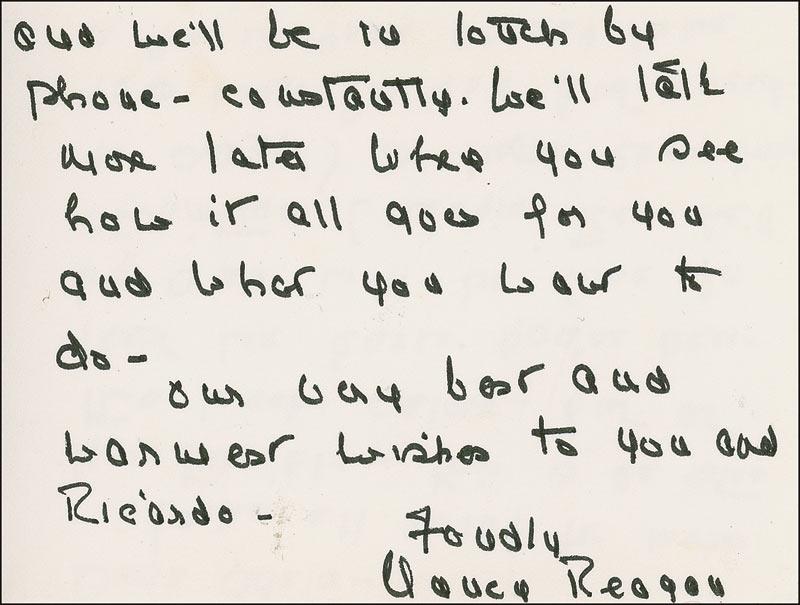 and we'll be in touch by
phone - constantly. We'll talk
more later when you see
how it all goes for you
and what you want to
do -
our very best and
warmest wishes to you and
Ricardo -
Fondly
Nancy Reagan